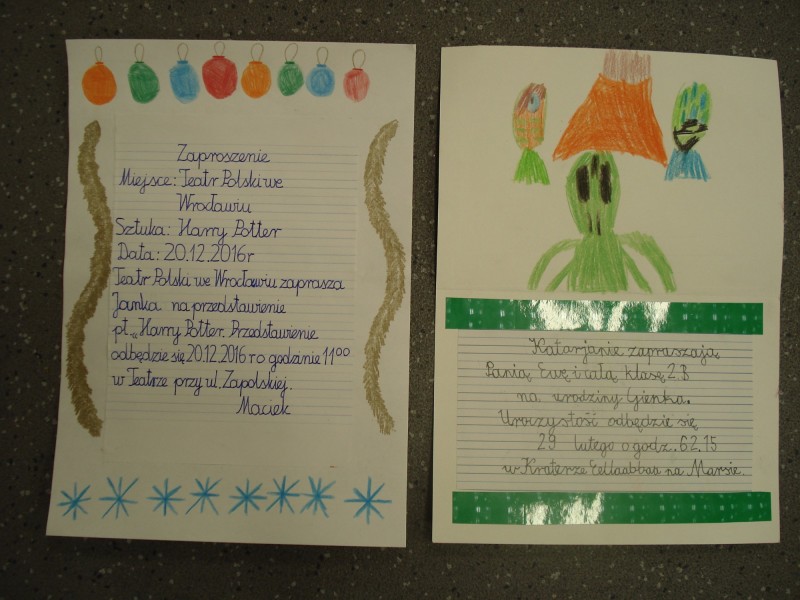 Zaproszenie
Miejsce: Teatr Polski we
Wrocławiu
Sztuka: Harry Potter
Data: 20.12.2016r
Teatr Polski we Wrocławiu zaprasza
Janka na przedstawienie
pt. „Harry Potter. Przedstawienie
odbędzie się 20.12.2016 r o godzinie 11⁰⁰
w Teatrze przy ul. Zapolskiej.
Maciek
Katarjanie zapraszają
Panią Ewę i całą klasę 2.B
na urodziny Gienka.
Uroczystość odbędzie się
29 lutego o godz. 62.15
w Kraterze na Marsie.